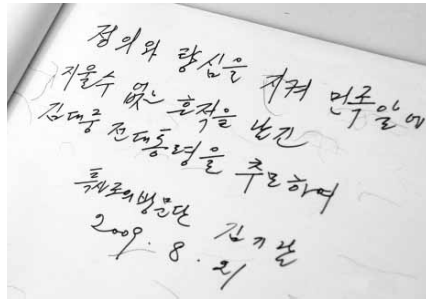 정의와 량심을 지켜 민족앞에
지울수 없는 흔적을 남긴
김대중 전대통령을 추모하여
특사조의방문단 김기남
2009. 8. 21